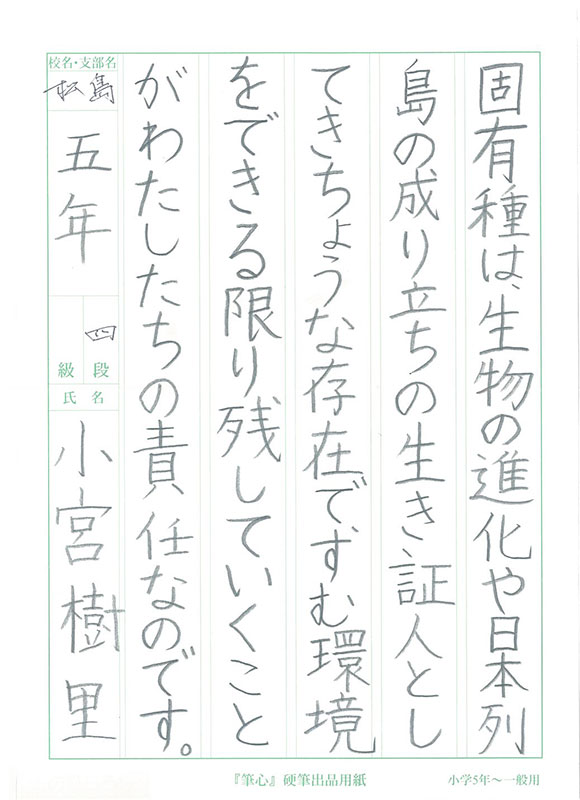 固有種は、生物の進化や日本列
島の成り立ちの生き、証人とし
てきちょうな存在で、すむ環境
をできる限り残していくこと
がわたしたちの責任なのです。
校名・支部名
松島
五年
四
級 段
氏 名
小宮樹里
『筆心』硬筆出品用紙
小学5年〜一般用